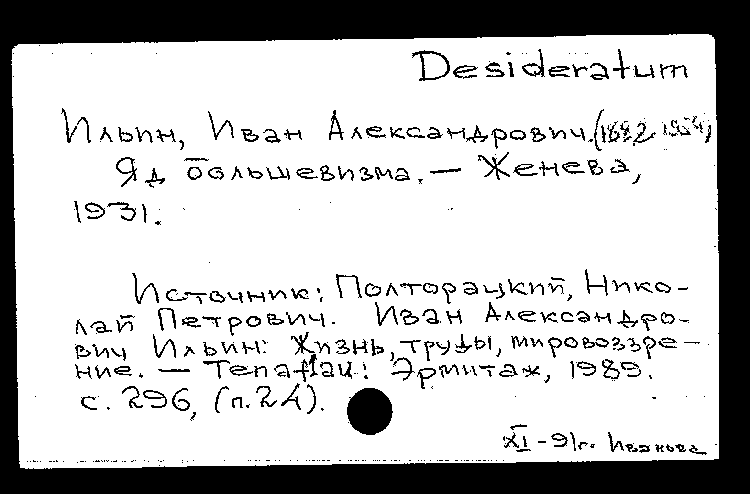 Desideratum
Ильин, Иван Александрович.(1882-1954)
Яд большевизма. — Женева,
1931.
Источник: Полторацкий, Нико-
лай Петрович. Иван Александро-
вич Ильин: Жизнь, труды, мировоззре-
ние. — Tenafлай: Эрмитаж, 1989.
с. 296, (п.24).
XI-91г. Иванова